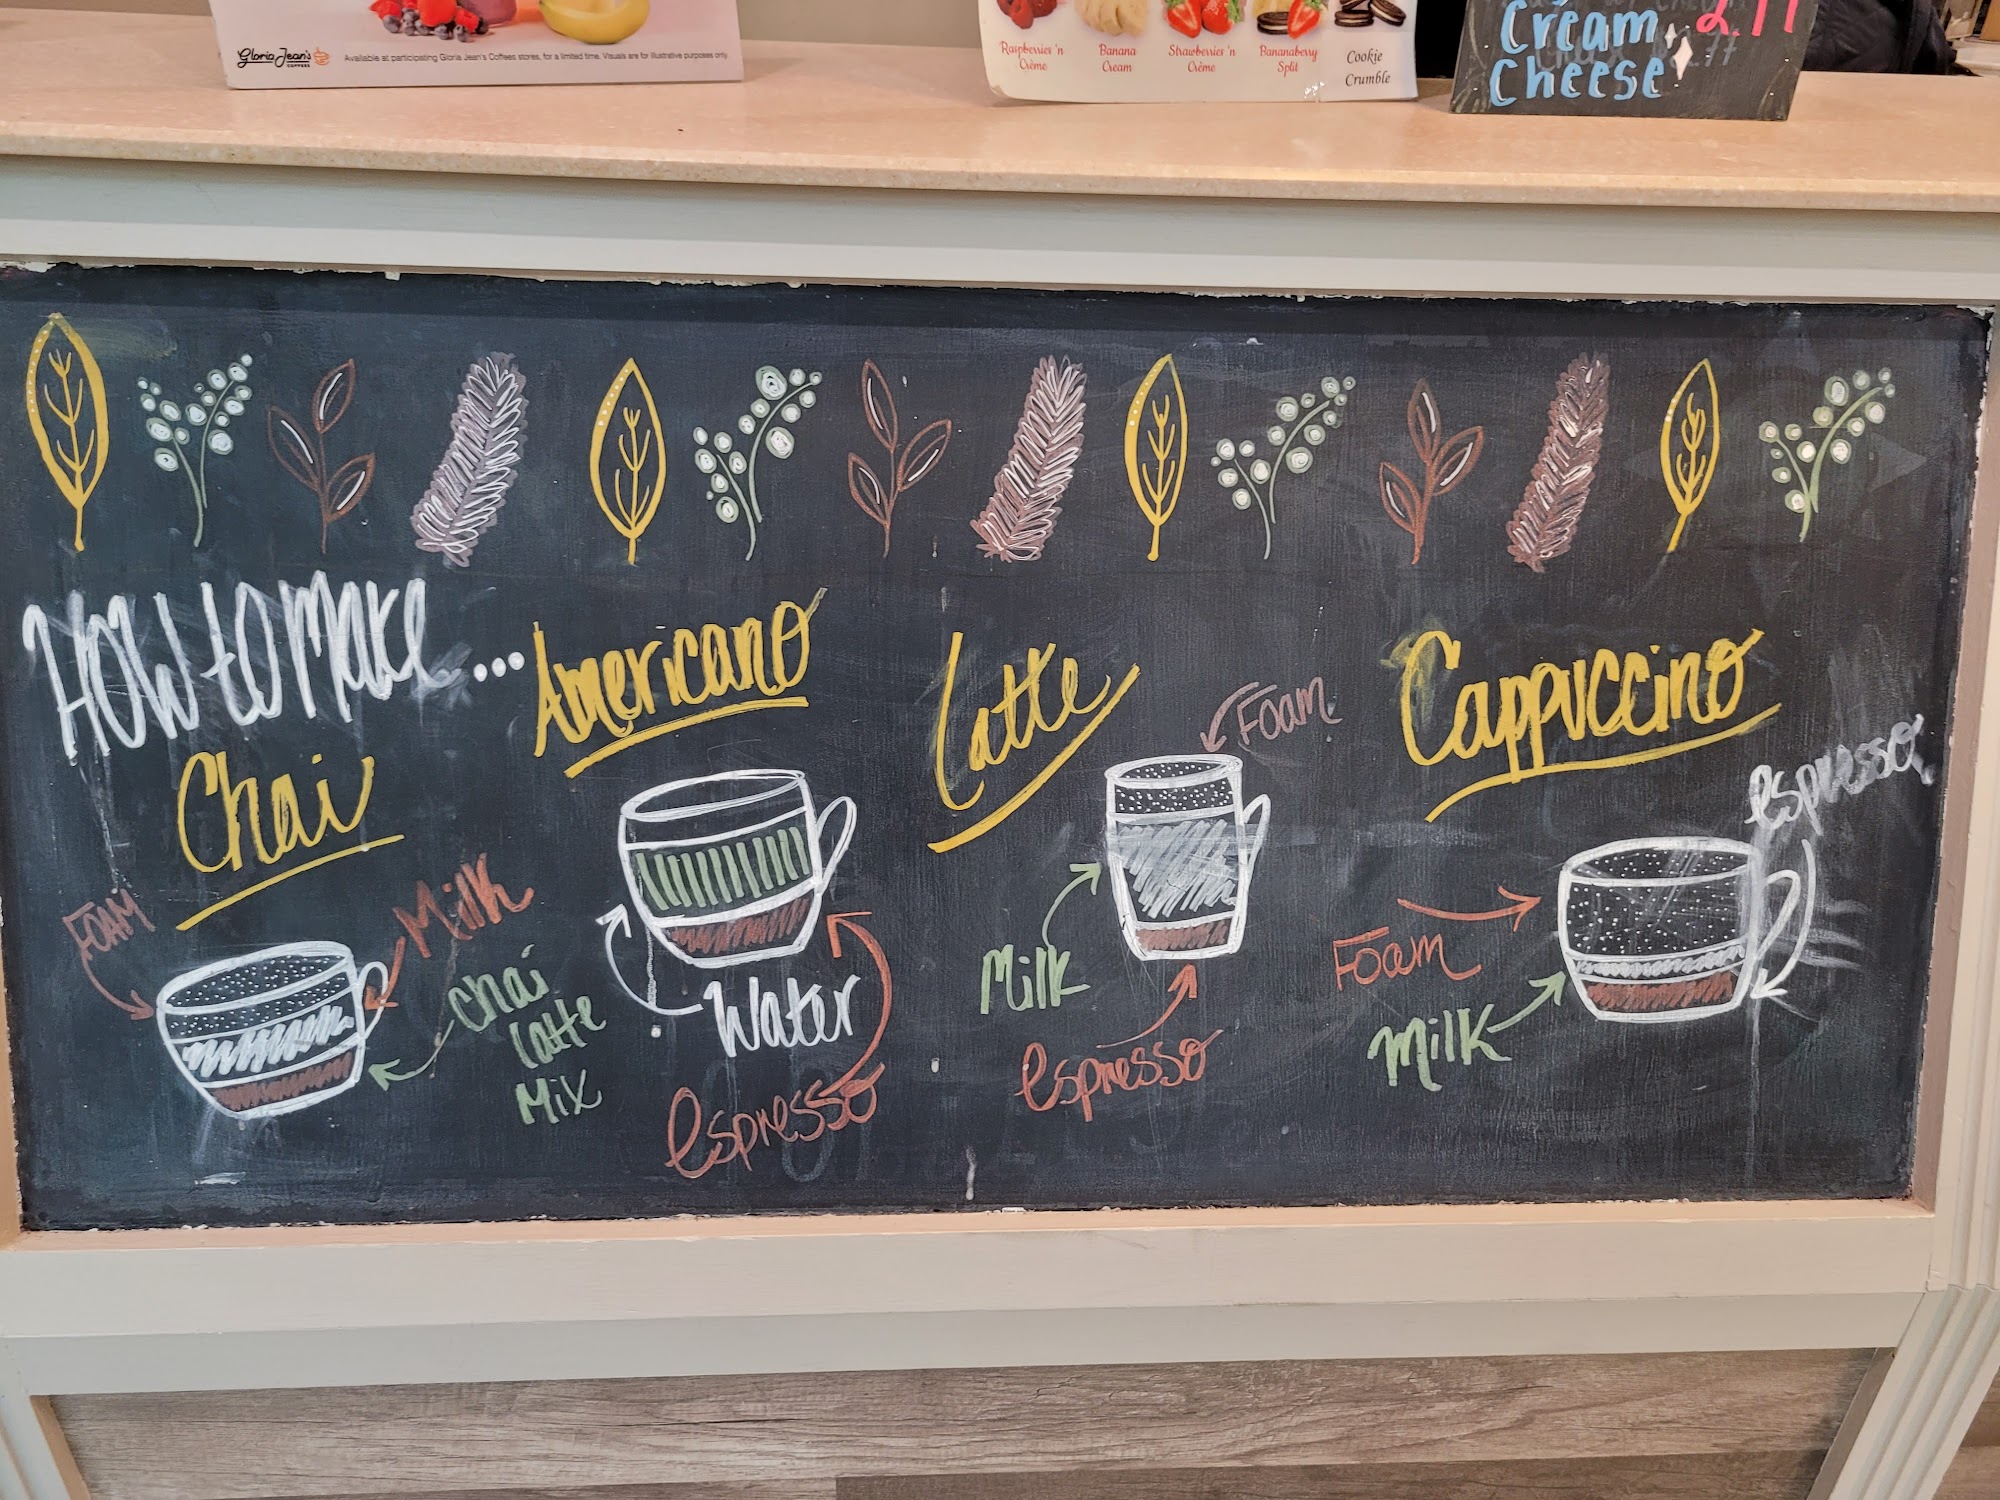 Gloria Jean's
COFFEES
Available at participating Gloria Jean's Coffees stores, for a limited time. Visuals are for illustrative purposes only.
Raspberries 'n
Crème
Banana
Cream
Strawberries 'n
Crème
Bananaberry
Split
Cookie
Crumble
Cream
Cheese
How to Make...
Chai
FOAM
Milk
Chai
Latte
Mix
Americano
Water
espresso
Latte
Foam
Milk
espresso
Cappuccino
espresso
Foam
Milk